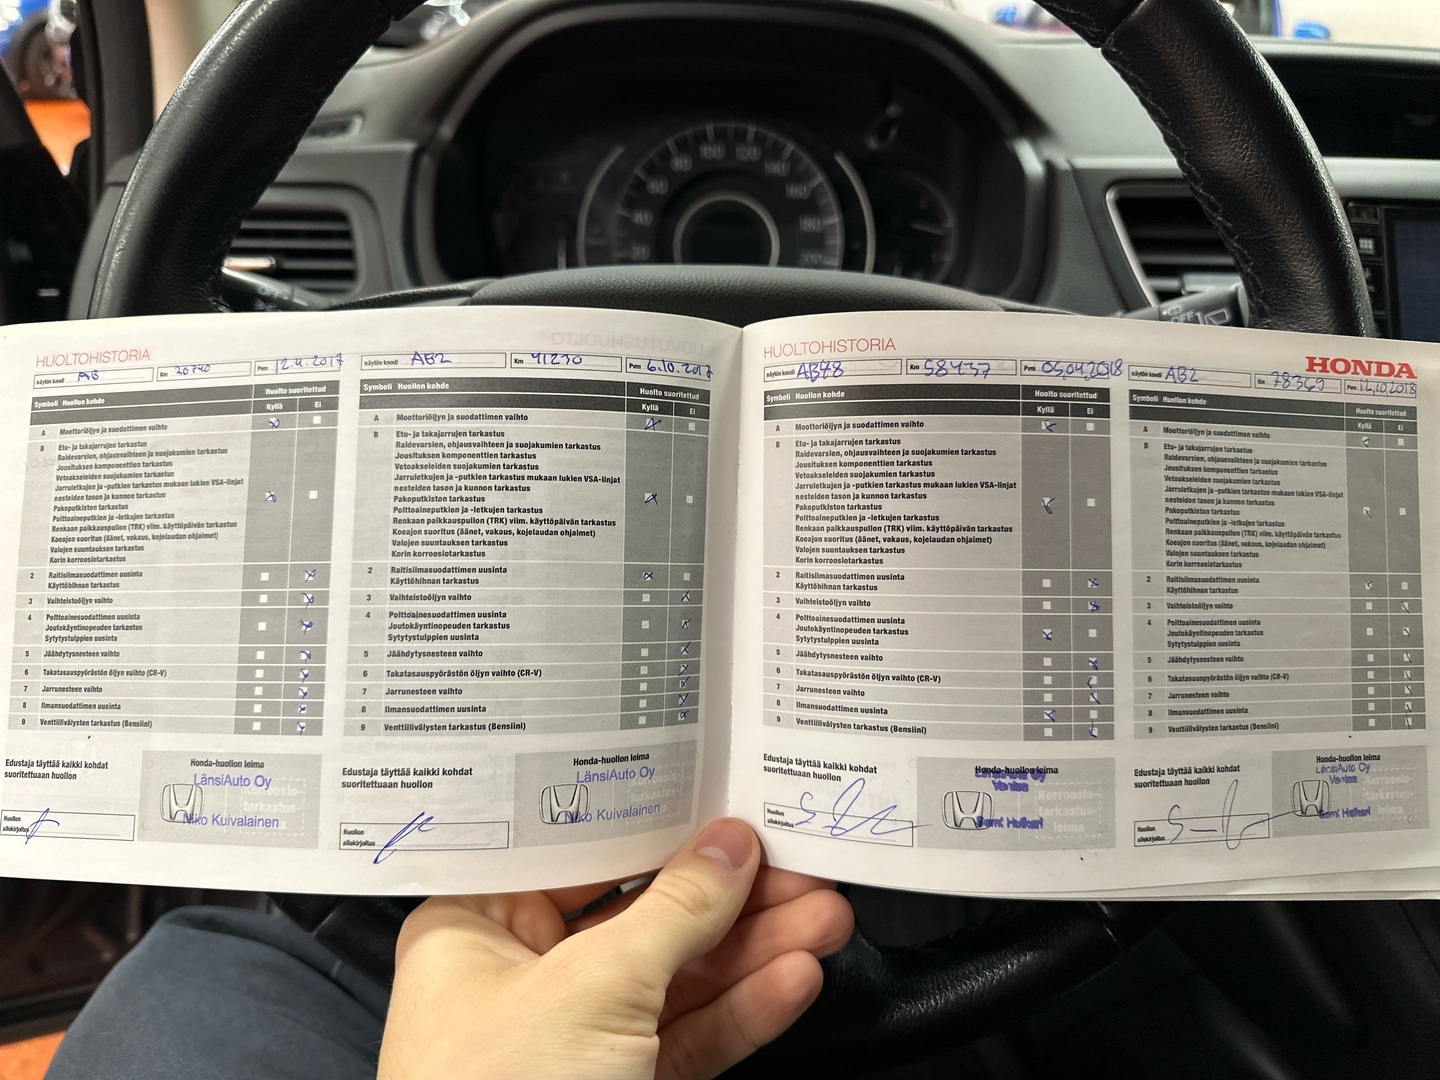 HUOLTOHISTORIA
näytön koodi AB Km 20740 Pvm 12.4.2017
Huolto suoritettu
Symboli Huollon kohde Kyllä Ei
A Moottoriöljyn ja suodattimen vaihto
B Etu- ja takajarrujen tarkastus
Raidevarsien, ohjausvaihteen ja suojakumien tarkastus
Jousituksen komponenttien tarkastus
Vetoakseleiden suojakumien tarkastus
Jarruletkujen ja -putkien tarkastus mukaan lukien VSA-linjat
nesteiden tason ja kunnon tarkastus
Pakoputkiston tarkastus
Polttoaineputkien ja -letkujen tarkastus
Renkaan paikkauspullon (TRK) viim. käyttöpäivän tarkastus
Koeajon suoritus (äänet, vakaus, kojelaudan ohjaimet)
Valojen suuntauksen tarkastus
Korin korroosiotarkastus
2 Raitisilmasuodattimen uusinta
Käyttöhihnan tarkastus
3 Vaihteistoöljyn vaihto
4 Polttoainesuodattimen uusinta
Joutokäyntinopeuden tarkastus
Sytytystulppien uusinta
5 Jäähdytysnesteen vaihto
6 Takatasauspyörästön öljyn vaihto (CR-V)
7 Jarrunesteen vaihto
8 Ilmansuodattimen uusinta
9 Venttiilivälysten tarkastus (Bensiini)
Edustaja täyttää kaikki kohdat
suoritettuaan huollon
Huollon
allekirjoitus
Honda-huollon leima
LänsiAuto Oy
Korroosio-
tarkastus-
leima
Niko Kuivalainen
näytön koodi AB2 Km 41230 Pvm 6.10.2017
Huolto suoritettu
Symboli Huollon kohde Kyllä Ei
A Moottoriöljyn ja suodattimen vaihto
B Etu- ja takajarrujen tarkastus
Raidevarsien, ohjausvaihteen ja suojakumien tarkastus
Jousituksen komponenttien tarkastus
Vetoakseleiden suojakumien tarkastus
Jarruletkujen ja -putkien tarkastus mukaan lukien VSA-linjat
nesteiden tason ja kunnon tarkastus
Pakoputkiston tarkastus
Polttoaineputkien ja -letkujen tarkastus
Renkaan paikkauspullon (TRK) viim. käyttöpäivän tarkastus
Koeajon suoritus (äänet, vakaus, kojelaudan ohjaimet)
Valojen suuntauksen tarkastus
Korin korroosiotarkastus
2 Raitisilmasuodattimen uusinta
Käyttöhihnan tarkastus
3 Vaihteistoöljyn vaihto
4 Polttoainesuodattimen uusinta
Joutokäyntinopeuden tarkastus
Sytytystulppien uusinta
5 Jäähdytysnesteen vaihto
6 Takatasauspyörästön öljyn vaihto (CR-V)
7 Jarrunesteen vaihto
8 Ilmansuodattimen uusinta
9 Venttiilivälysten tarkastus (Bensiini)
Edustaja täyttää kaikki kohdat
suoritettuaan huollon
Huollon
allekirjoitus
Honda-huollon leima
LänsiAuto Oy
Niko Kuivalainen
HUOLTOHISTORIA
näytön koodi AB48 Km 58437 Pvm 05.04.2018
Huolto suoritettu
Symboli Huollon kohde Kyllä Ei
A Moottoriöljyn ja suodattimen vaihto
B Etu- ja takajarrujen tarkastus
Raidevarsien, ohjausvaihteen ja suojakumien tarkastus
Jousituksen komponenttien tarkastus
Vetoakseleiden suojakumien tarkastus
Jarruletkujen ja -putkien tarkastus mukaan lukien VSA-linjat
nesteiden tason ja kunnon tarkastus
Pakoputkiston tarkastus
Polttoaineputkien ja -letkujen tarkastus
Renkaan paikkauspullon (TRK) viim. käyttöpäivän tarkastus
Koeajon suoritus (äänet, vakaus, kojelaudan ohjaimet)
Valojen suuntauksen tarkastus
Korin korroosiotarkastus
2 Raitisilmasuodattimen uusinta
Käyttöhihnan tarkastus
3 Vaihteistoöljyn vaihto
4 Polttoainesuodattimen uusinta
Joutokäyntinopeuden tarkastus
Sytytystulppien uusinta
5 Jäähdytysnesteen vaihto
6 Takatasauspyörästön öljyn vaihto (CR-V)
7 Jarrunesteen vaihto
8 Ilmansuodattimen uusinta
9 Venttiilivälysten tarkastus (Bensiini)
Edustaja täyttää kaikki kohdat
suoritettuaan huollon
Huollon
allekirjoitus
Honda-huollon leima
LänsiAuto Oy
Vantaa
Korroosio-
tarkastus-
leima
HONDA
näytön koodi AB2 Km 78369 Pvm 12.10.2018
Huolto suoritettu
Symboli Huollon kohde Kyllä Ei
A Moottoriöljyn ja suodattimen vaihto
B Etu- ja takajarrujen tarkastus
Raidevarsien, ohjausvaihteen ja suojakumien tarkastus
Jousituksen komponenttien tarkastus
Vetoakseleiden suojakumien tarkastus
Jarruletkujen ja -putkien tarkastus mukaan lukien VSA-linjat
nesteiden tason ja kunnon tarkastus
Pakoputkiston tarkastus
Polttoaineputkien ja -letkujen tarkastus
Renkaan paikkauspullon (TRK) viim. käyttöpäivän tarkastus
Koeajon suoritus (äänet, vakaus, kojelaudan ohjaimet)
Valojen suuntauksen tarkastus
Korin korroosiotarkastus
2 Raitisilmasuodattimen uusinta
Käyttöhihnan tarkastus
3 Vaihteistoöljyn vaihto
4 Polttoainesuodattimen uusinta
Joutokäyntinopeuden tarkastus
Sytytystulppien uusinta
5 Jäähdytysnesteen vaihto
6 Takatasauspyörästön öljyn vaihto (CR-V)
7 Jarrunesteen vaihto
8 Ilmansuodattimen uusinta
9 Venttiilivälysten tarkastus (Bensiini)
Edustaja täyttää kaikki kohdat
suoritettuaan huollon
Huollon
allekirjoitus
Honda-huollon leima
LänsiAuto Oy
Vantaa
Korroosio-
tarkastus-
leima
20 40 60 80 100 120 140 160 180 200
OFF